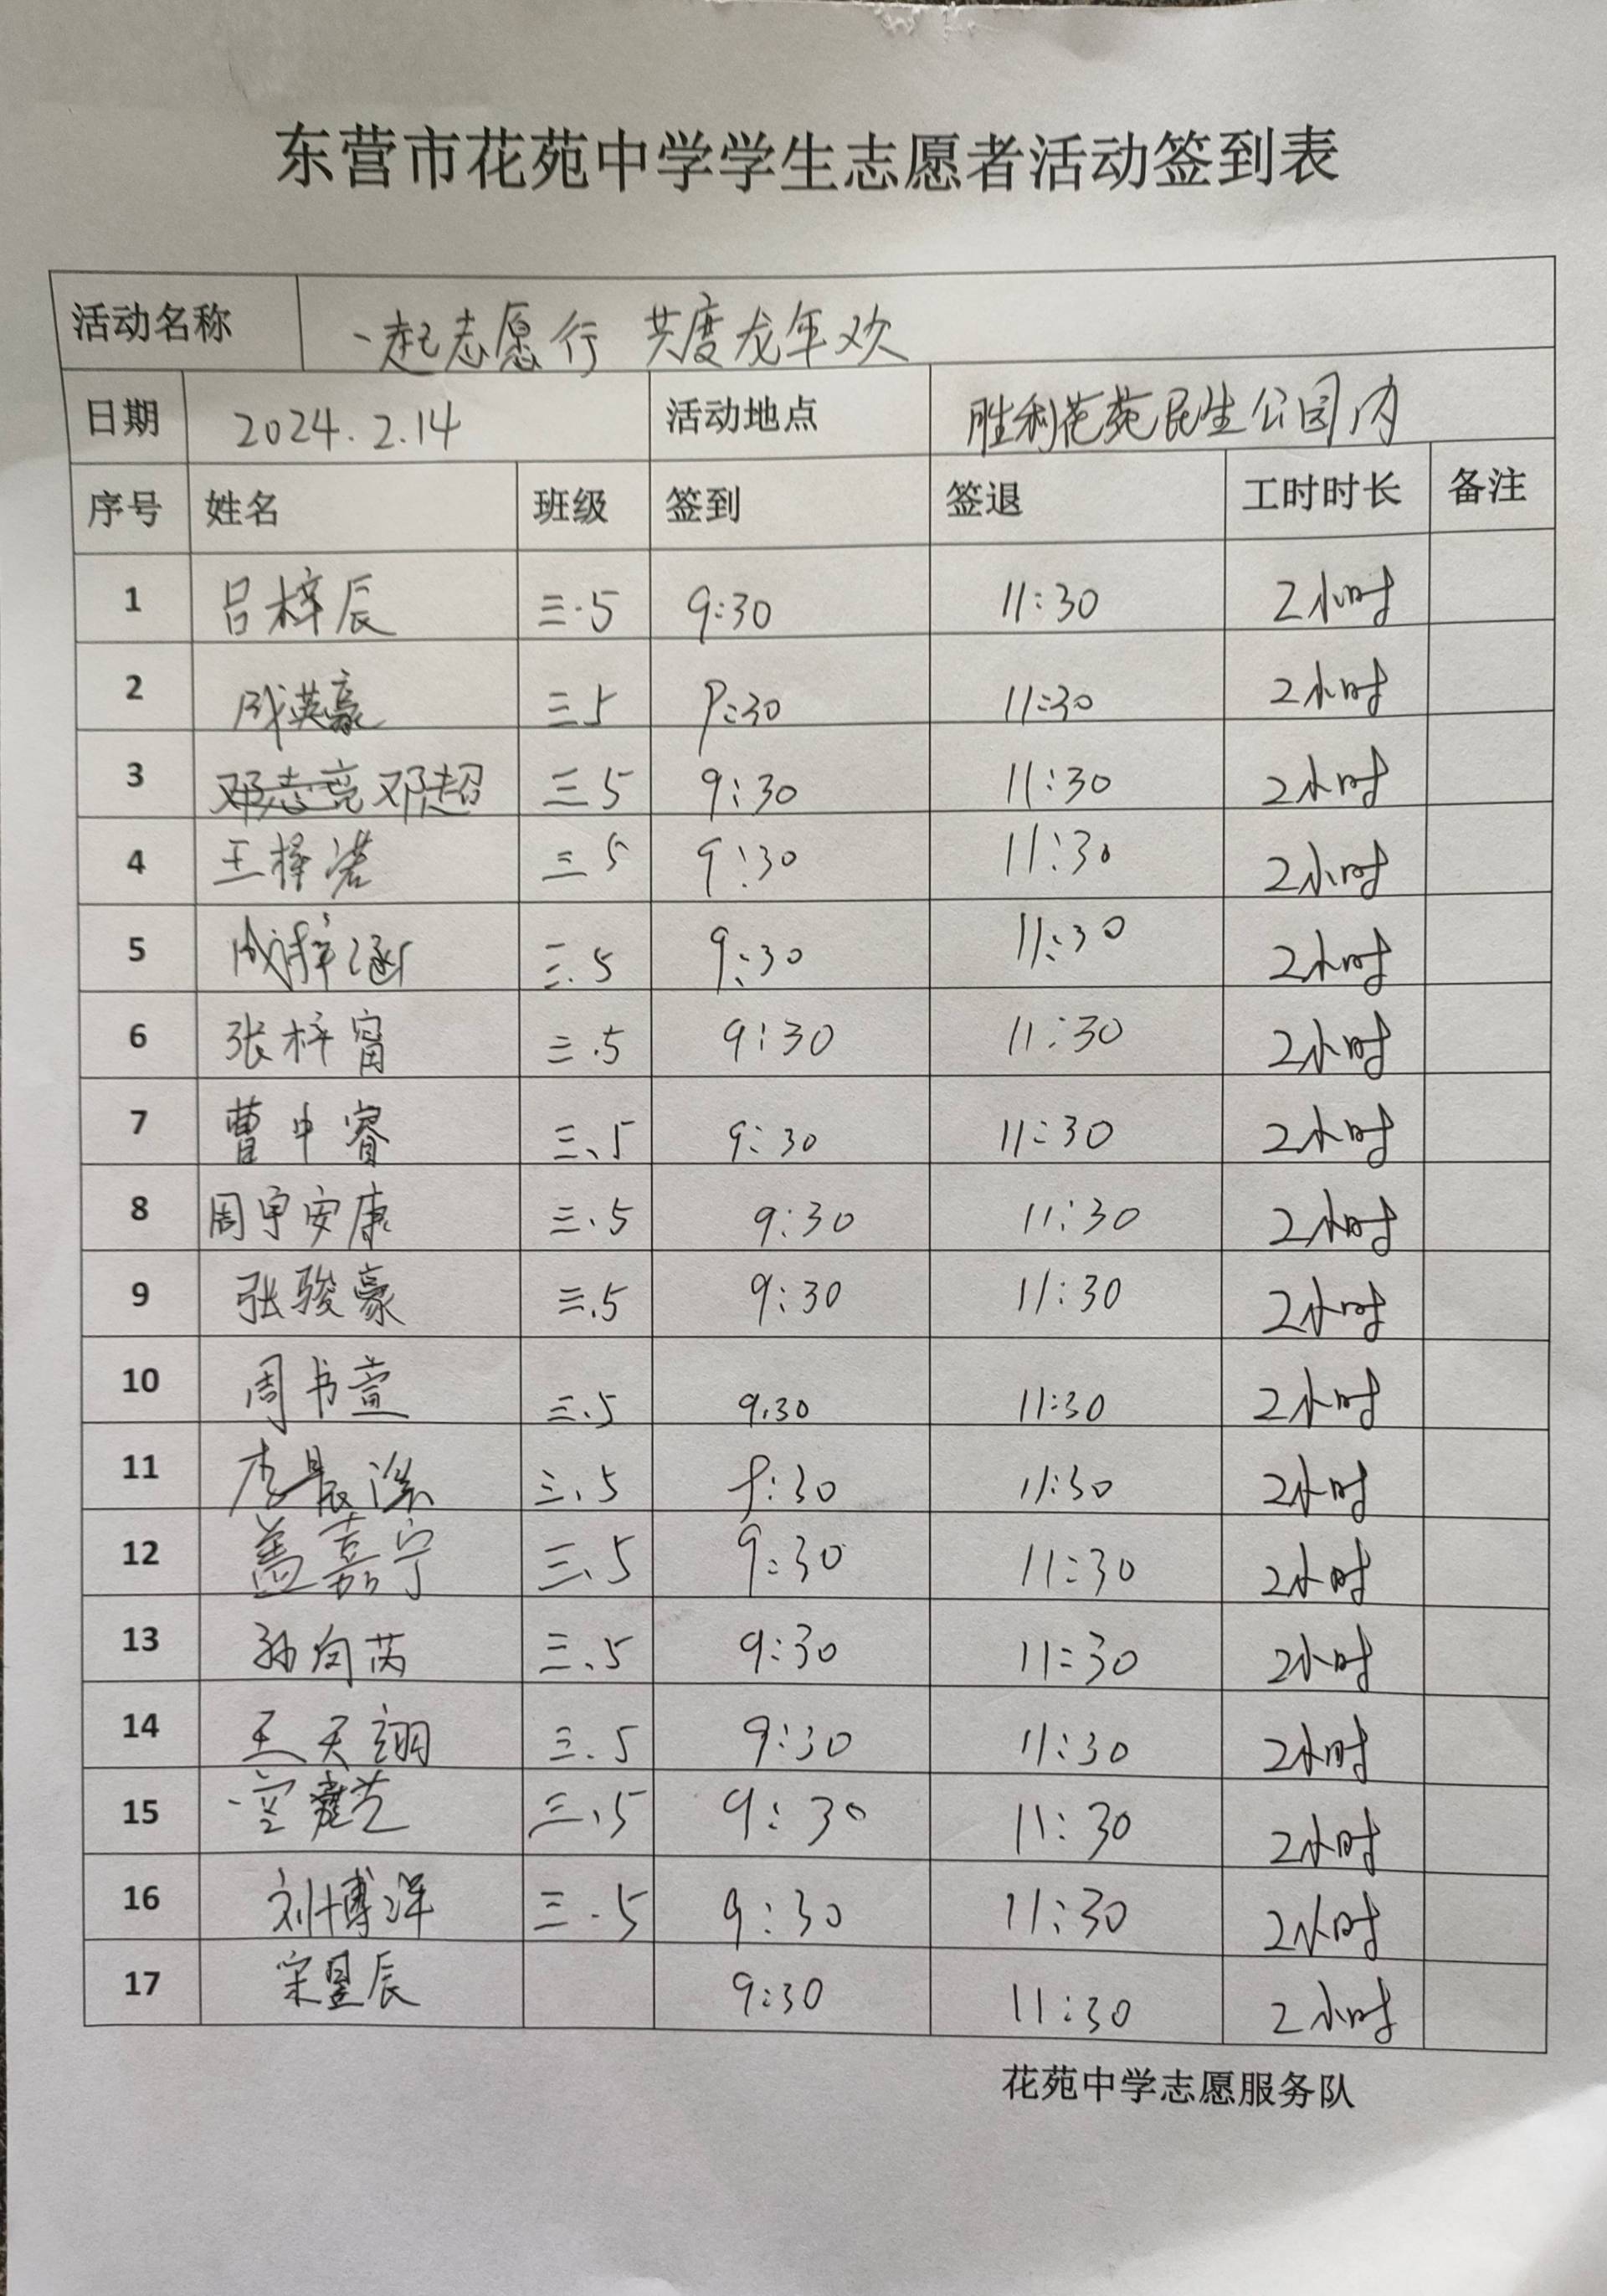 东营市花苑中学学生志愿者活动签到表
活动名称 一起志愿行 共度龙年欢
日期 2024.2.14 活动地点 胜利花苑民生公园内
序号 姓名 班级 签到 签退 工时时长 备注
1 吕梓辰 三.5 9:30 11:30 2小时
2 成英豪 三5 9:30 11:30 2小时
3 邓志亮 邓超 三5 9:30 11:30 2小时
4 王择诺 三5 9:30 11:30 2小时
5 成梓涵 三.5 9:30 11:30 2小时
6 张梓甯 三.5 9:30 11:30 2小时
7 曹中睿 三、5 9:30 11:30 2小时
8 周宇安康 三、5 9:30 11:30 2小时
9 张骏豪 三.5 9:30 11:30 2小时
10 周书萱 三、5 9.30 11:30 2小时
11 李晨 三、5 9:30 11:30 2小时
12 盖嘉宁 三、5 9:30 11:30 2小时
13 孙向芮 三、5 9:30 11:30 2小时
14 王天翊 三.5 9:30 11:30 2小时
15 三、5 9:30 11:30 2小时
16 刘博洋 三.5 9:30 11:30 2小时
17 宋昱辰 9:30 11:30 2小时
花苑中学志愿服务队